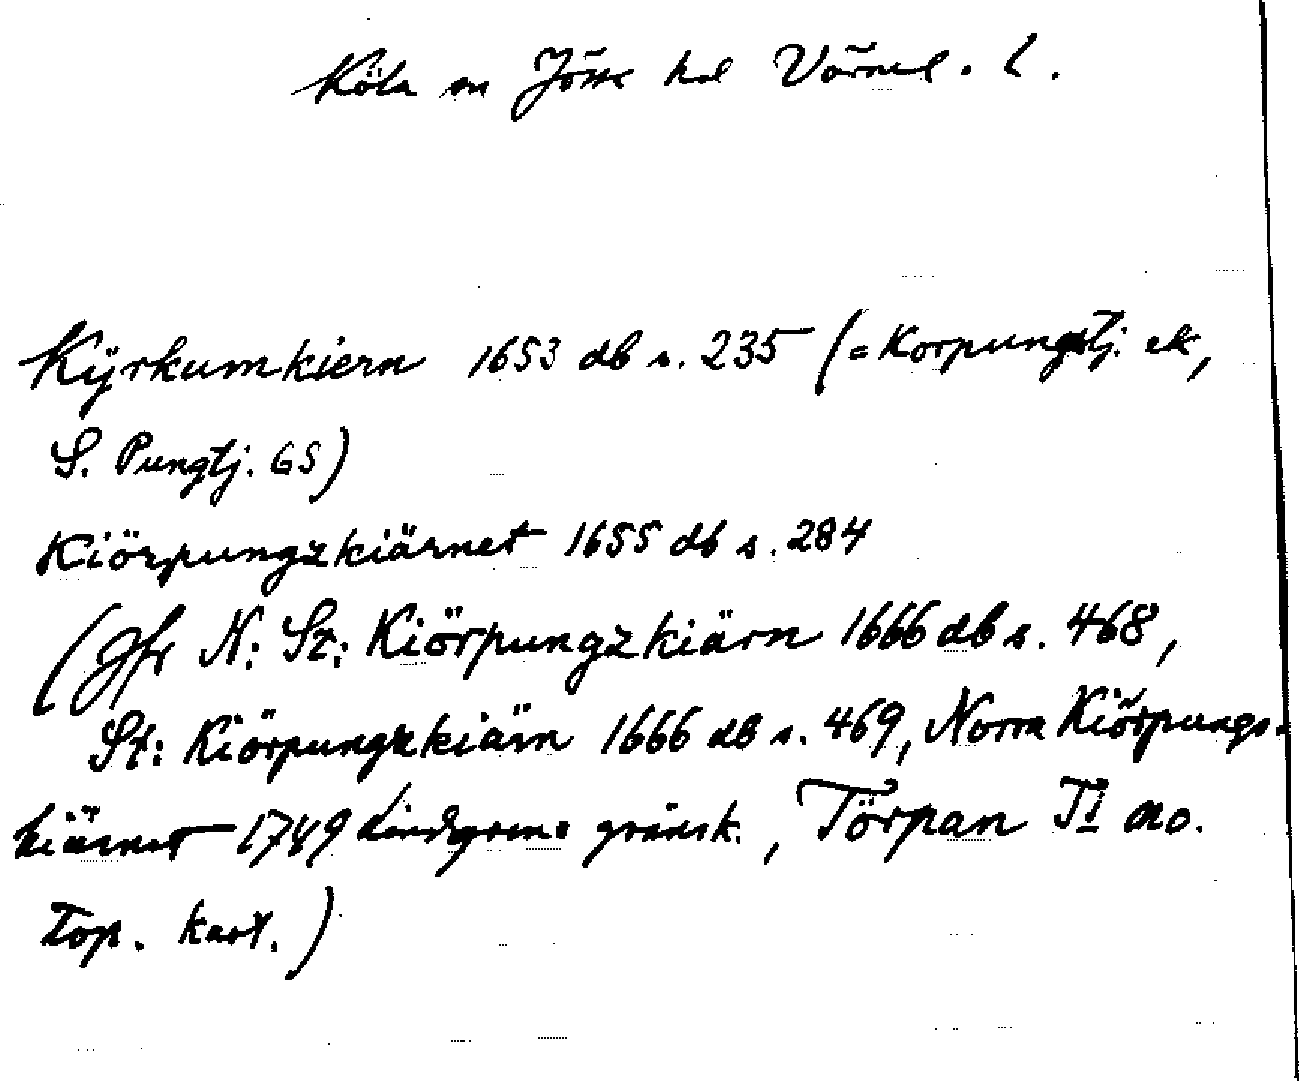 Köla sn Jösse hd Värml. l.
Kÿrkumkiern 1653 db s. 235 (= Korpungstj. ek,
S. Pungtj. GS)
Kiörpungzkiärnet 1655 db s. 284
(Jfr N: St: Kiörpungzkiärn 1666 db s. 468,
St: Kiörpungzkiärn 1666 db s. 469, Norra Kiörpungs-
kiärnet 1749 Lindgrens gränsk., Törpan
top. kart.)